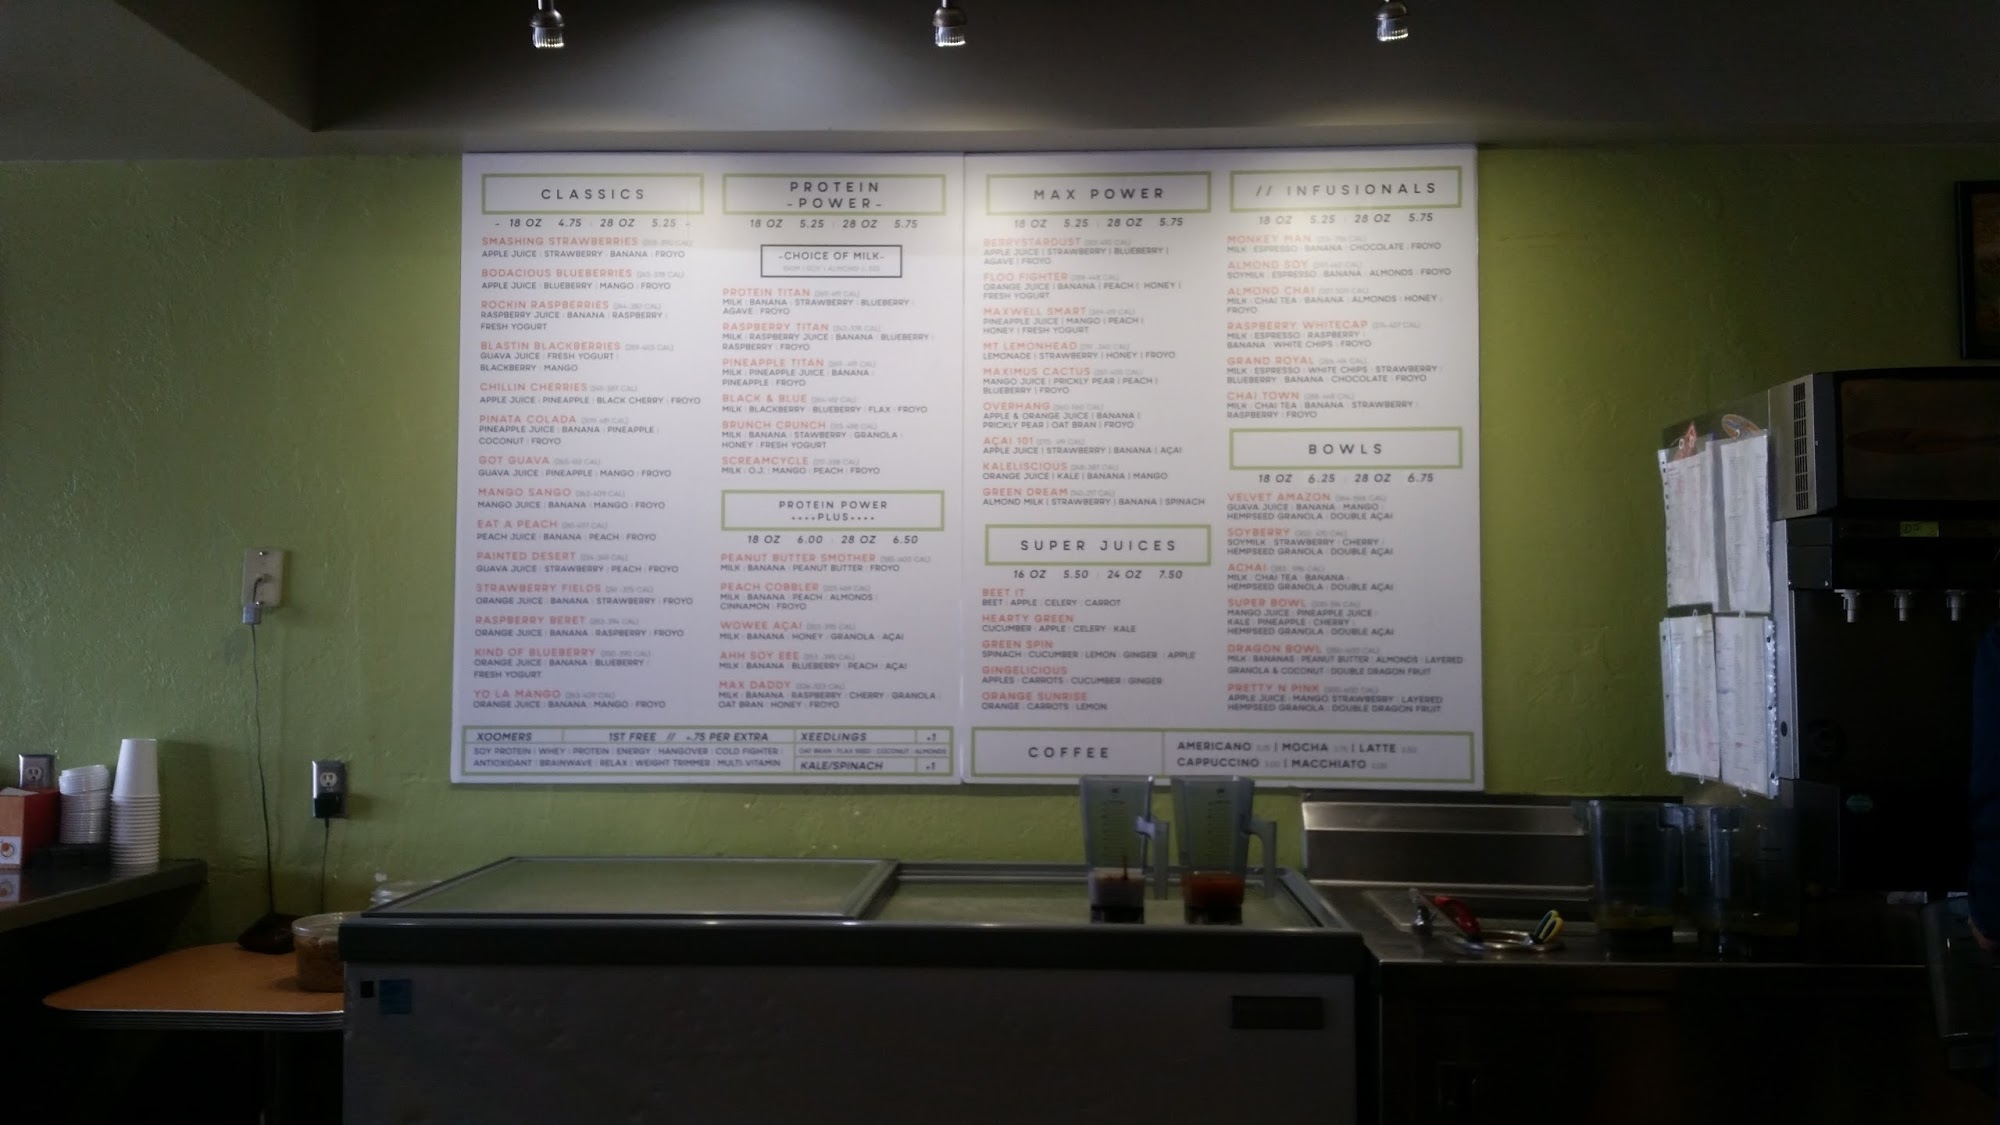 CLASSICS
- 18 OZ 4.75 : 28 OZ 5.25 -
SMASHING STRAWBERRIES
APPLE JUICE : STRAWBERRY : BANANA : FROYO
BODACIOUS BLUEBERRIES
APPLE JUICE : BLUEBERRY : MANGO : FROYO
ROCKIN RASPBERRIES
RASPBERRY JUICE : BANANA : RASPBERRY :
FRESH YOGURT
BLASTIN BLACKBERRIES
GUAVA JUICE : FRESH YOGURT :
BLACKBERRY : MANGO
CHILLIN CHERRIES
APPLE JUICE : PINEAPPLE : BLACK CHERRY : FROYO
PINATA COLADA
PINEAPPLE JUICE : BANANA : PINEAPPLE :
COCONUT : FROYO
GOT GUAVA
GUAVA JUICE : PINEAPPLE : MANGO : FROYO
MANGO SANGO
MANGO JUICE : BANANA : MANGO : FROYO
EAT A PEACH
PEACH JUICE : BANANA : PEACH : FROYO
PAINTED DESERT
GUAVA JUICE : STRAWBERRY : PEACH : FROYO
STRAWBERRY FIELDS
ORANGE JUICE : BANANA : STRAWBERRY : FROYO
RASPBERRY BERET
ORANGE JUICE : BANANA : RASPBERRY : FROYO
KIND OF BLUEBERRY
ORANGE JUICE : BANANA : BLUEBERRY :
FRESH YOGURT
YO LA MANGO
ORANGE JUICE : BANANA : MANGO : FROYO
PROTEIN
-POWER-
18 OZ 5.25 : 28 OZ 5.75
-CHOICE OF MILK-
PROTEIN TITAN
MILK : BANANA : STRAWBERRY : BLUEBERRY :
AGAVE : FROYO
RASPBERRY TITAN
MILK : RASPBERRY JUICE : BANANA : BLUEBERRY :
RASPBERRY : FROYO
PINEAPPLE TITAN
MILK : PINEAPPLE JUICE : BANANA :
PINEAPPLE : FROYO
BLACK & BLUE
MILK : BLACKBERRY : BLUEBERRY : FLAX : FROYO
BRUNCH CRUNCH
MILK : BANANA : STAWBERRY : GRANOLA :
HONEY : FRESH YOGURT
SCREAMCYCLE
MILK : O.J. : MANGO : PEACH : FROYO
PROTEIN POWER
••••PLUS••••
18 OZ 6.00 : 28 OZ 6.50
PEANUT BUTTER SMOTHER
MILK : BANANA : PEANUT BUTTER : FROYO
PEACH COBBLER
MILK : BANANA : PEACH : ALMONDS :
CINNAMON : FROYO
WOWEE AÇAI
MILK : BANANA : HONEY : GRANOLA : AÇAI
AHH SOY EEE
MILK : BANANA : BLUEBERRY : PEACH : AÇAI
MAX DADDY
MILK : BANANA : RASPBERRY : CHERRY : GRANOLA :
OAT BRAN : HONEY : FROYO
XOOMERS 1ST FREE // +.75 PER EXTRA
SOY PROTEIN | WHEY | PROTEIN | ENERGY | HANGOVER | COLD FIGHTER |
ANTIOXIDANT | BRAINWAVE | RELAX | WEIGHT TRIMMER | MULTI VITAMIN
XEEDLINGS +1
OAT BRAN : FLAX SEED : COCONUT : ALMONDS
KALE/SPINACH +1
MAX POWER
18 OZ 5.25 : 28 OZ 5.75
BERRYSTARDUST
APPLE JUICE | STRAWBERRY | BLUEBERRY |
AGAVE | FROYO
FLOO FIGHTER
ORANGE JUICE | BANANA | PEACH | HONEY |
FRESH YOGURT
MAXWELL SMART
PINEAPPLE JUICE | MANGO | PEACH |
HONEY | FRESH YOGURT
MT LEMONHEAD
LEMONADE | STRAWBERRY | HONEY | FROYO
MAXIMUS CACTUS
MANGO JUICE | PRICKLY PEAR | PEACH |
BLUEBERRY | FROYO
OVERHANG
APPLE & ORANGE JUICE | BANANA |
PRICKLY PEAR | OAT BRAN | FROYO
AÇAI 101
APPLE JUICE | STRAWBERRY | BANANA | AÇAI
KALELISCIOUS
ORANGE JUICE | KALE | BANANA | MANGO
GREEN DREAM
ALMOND MILK | STRAWBERRY | BANANA | SPINACH
SUPER JUICES
16 OZ 5.50 : 24 OZ 7.50
BEET IT
BEET : APPLE : CELERY : CARROT
HEARTY GREEN
CUCUMBER : APPLE : CELERY : KALE
GREEN SPIN
SPINACH : CUCUMBER : LEMON : GINGER : APPLE
GINGELICIOUS
APPLES : CARROTS : CUCUMBER : GINGER
ORANGE SUNRISE
ORANGE : CARROTS : LEMON
// INFUSIONALS
18 OZ 5.25 : 28 OZ 5.75
MONKEY MAN
MILK : ESPRESSO : BANANA : CHOCOLATE : FROYO
ALMOND SOY
SOYMILK : ESPRESSO : BANANA : ALMONDS : FROYO
ALMOND CHAI
MILK : CHAI TEA : BANANA : ALMONDS : HONEY :
FROYO
RASPBERRY WHITECAP
MILK : ESPRESSO : RASPBERRY :
BANANA : WHITE CHIPS : FROYO
GRAND ROYAL
MILK : ESPRESSO : WHITE CHIPS : STRAWBERRY :
BLUEBERRY : BANANA : CHOCOLATE : FROYO
CHAI TOWN
MILK : CHAI TEA : BANANA : STRAWBERRY :
RASPBERRY : FROYO
BOWLS
18 OZ 6.25 : 28 OZ 6.75
VELVET AMAZON
GUAVA JUICE : BANANA : MANGO :
HEMPSEED GRANOLA : DOUBLE AÇAI
SOYBERRY
SOYMILK : STRAWBERRY : CHERRY :
HEMPSEED GRANOLA : DOUBLE AÇAI
ACHAI
MILK : CHAI TEA : BANANA :
HEMPSEED GRANOLA : DOUBLE AÇAI
SUPER BOWL
MANGO JUICE : PINEAPPLE JUICE :
KALE : PINEAPPLE : CHERRY :
HEMPSEED GRANOLA : DOUBLE AÇAI
DRAGON BOWL
MILK : BANANAS : PEANUT BUTTER : ALMONDS : LAYERED
GRANOLA & COCONUT : DOUBLE DRAGON FRUIT
PRETTY N PINK
APPLE JUICE : MANGO STRAWBERRY : LAYERED
HEMPSEED GRANOLA : DOUBLE DRAGON FRUIT
COFFEE
AMERICANO | MOCHA | LATTE
CAPPUCCINO | MACCHIATO